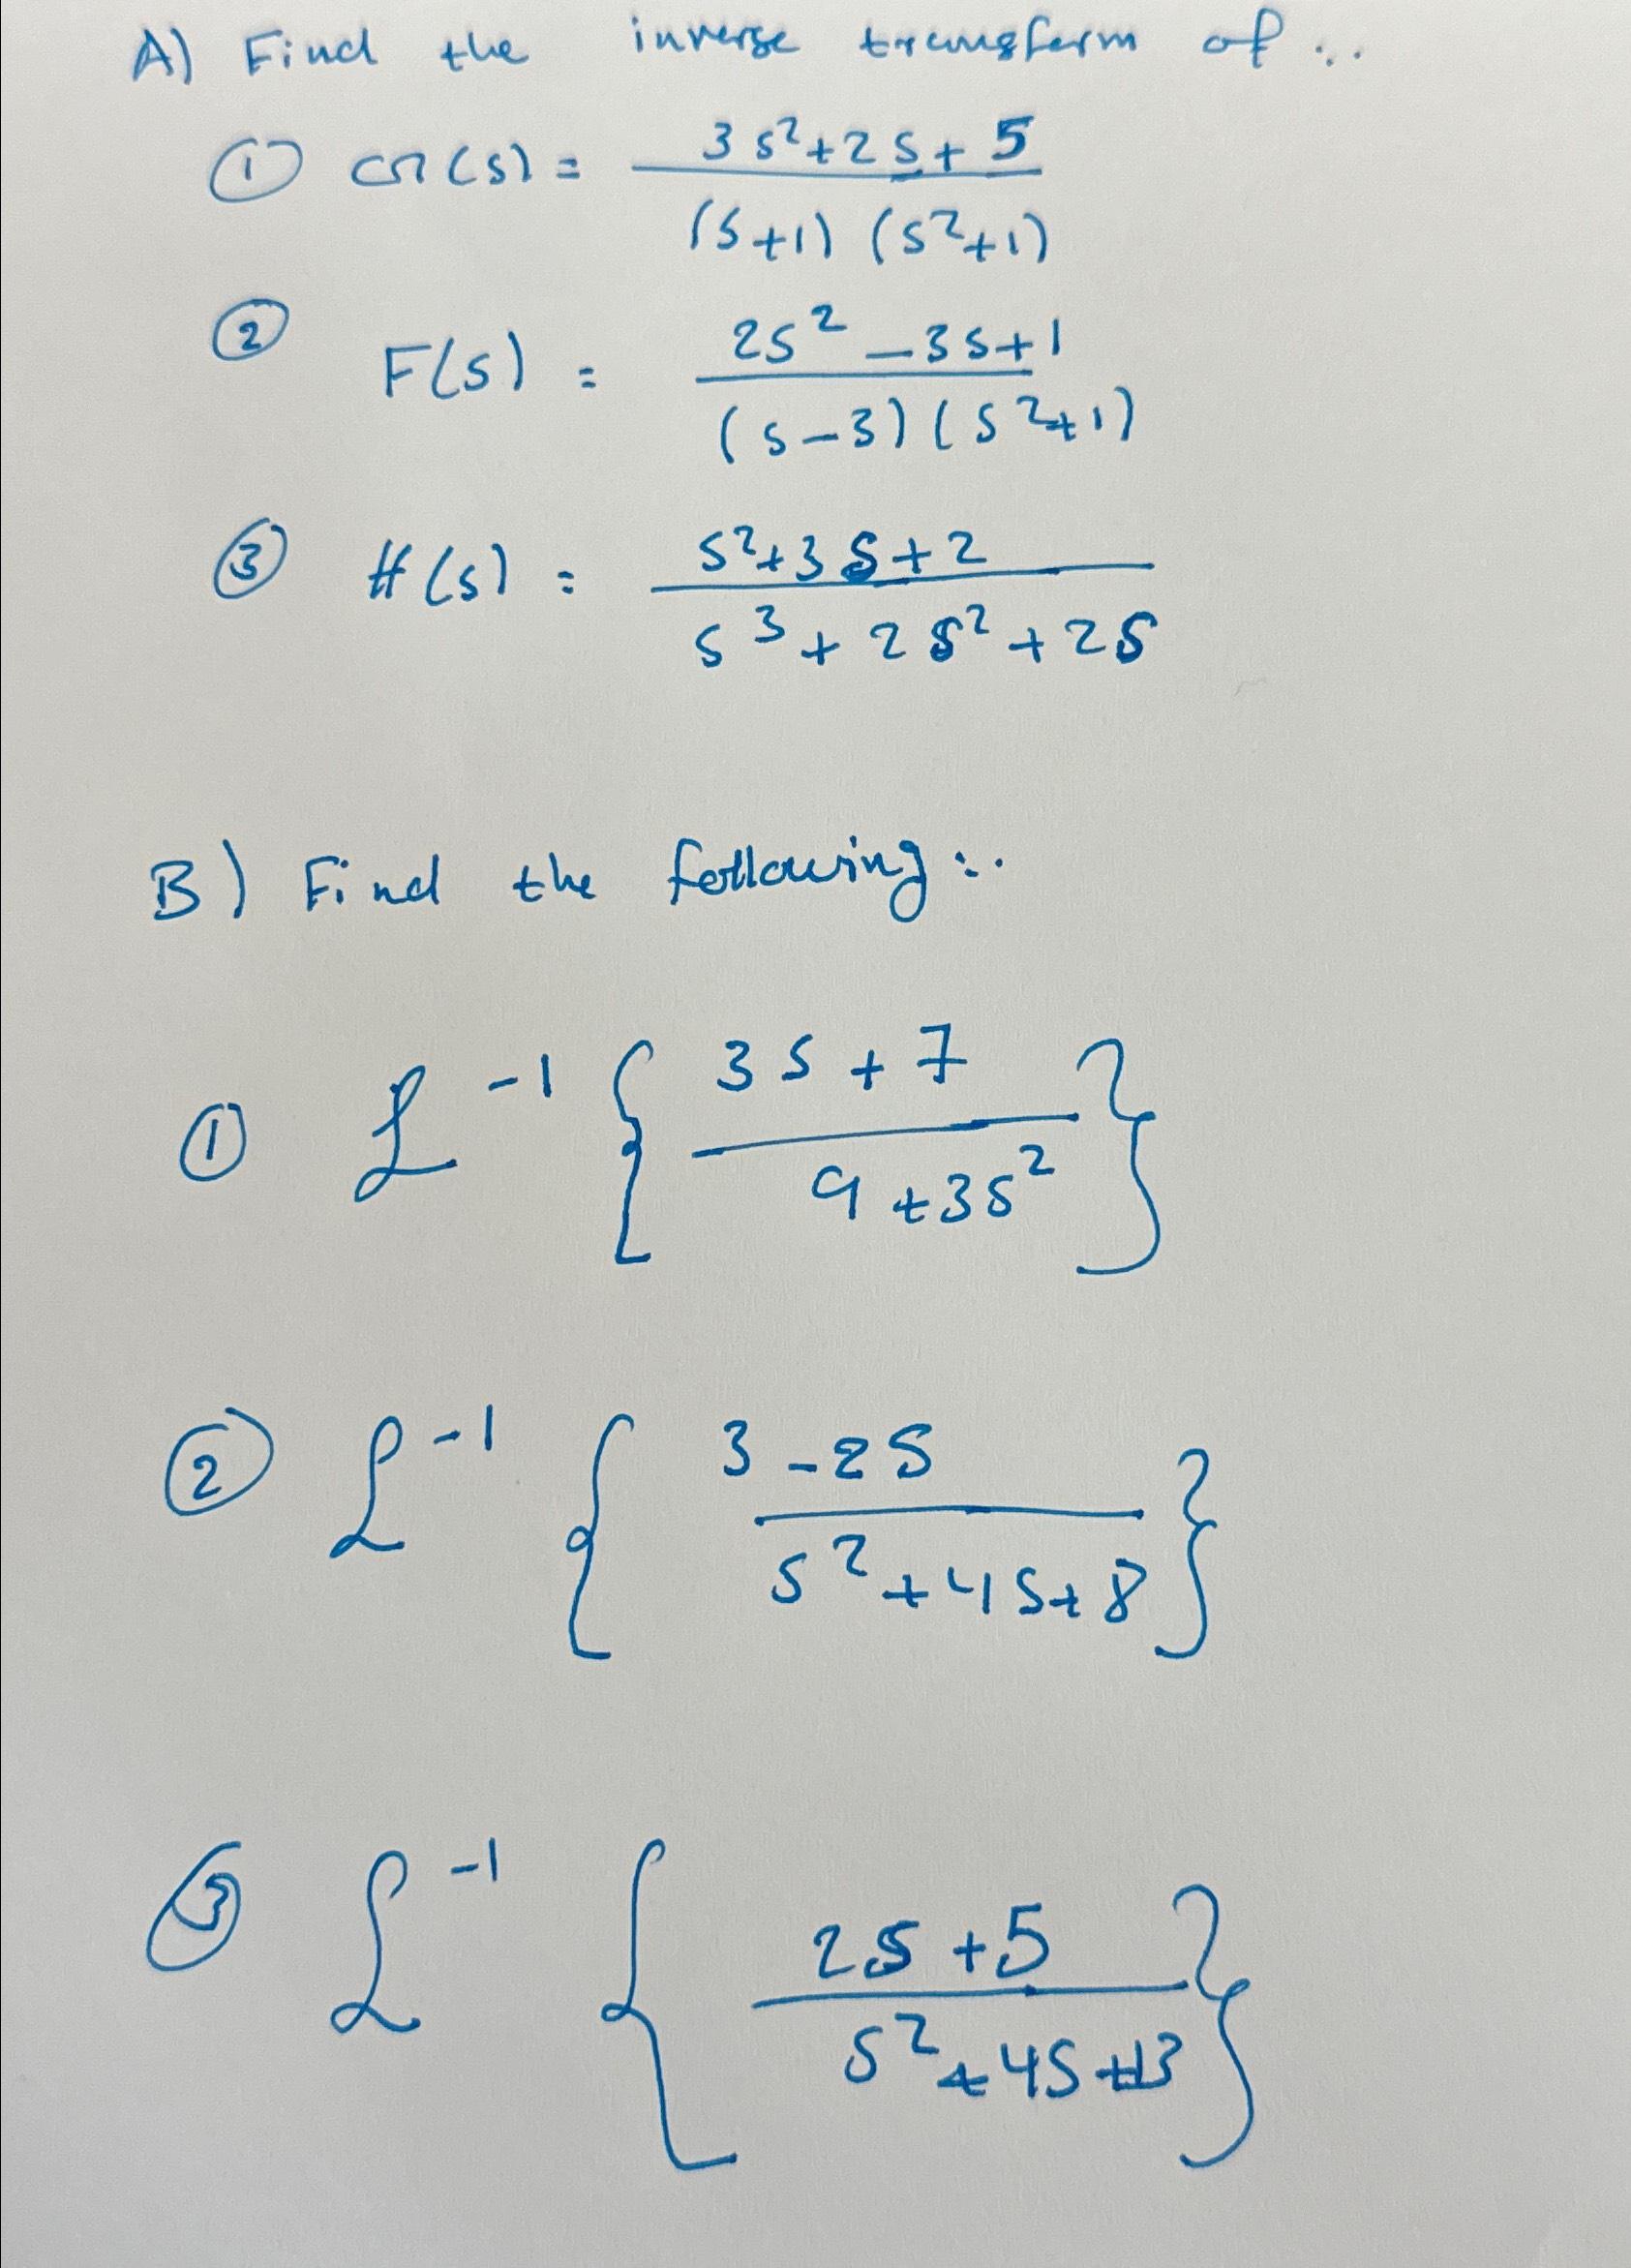 A) Find the inverse transform of :.
① G(s) = 3s²+2s+5 / (s+1) (s²+1)
② F(s) = 2s² - 3s+1 / (s-3) (s²+1)
③ H(s) = s²+3s+2 / s³ + 2s² + 2s
B) Find the following :.
① ℒ⁻¹ { 3s + 7 / 9 + 3s² }
② ℒ⁻¹ { 3 - 2s / s² + 4s + 8 }
③ ℒ⁻¹ { 2s + 5 / s² + 4s + 13 }